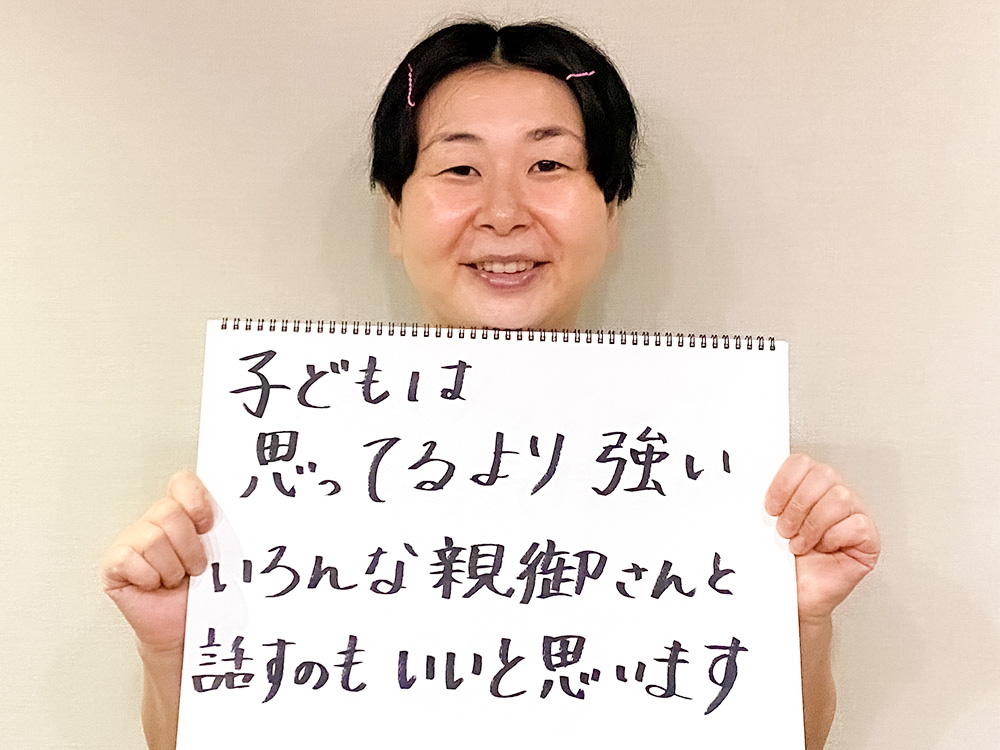 子どもは
思ってるより強い
いろんな親御さんと
話すのもいいと思います